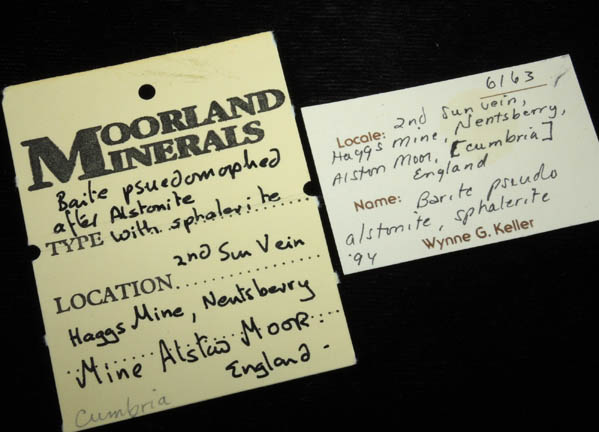 MOORLAND
MINERALS
Baite psuedomophed
after Alstonite
TYPE with sphalerite
2nd Sun Vein
LOCATION
Haggs Mine, Nentsberry
Mine Alston MOOR.
England -
Cumbria
6163
Locale: 2nd Sun vein,
Haggs mine, Nentsberry,
Alston Moor, [Cumbria]
England
Name: Barite pseudo
alstonite, sphalerite
Wynne G. Keller
'94